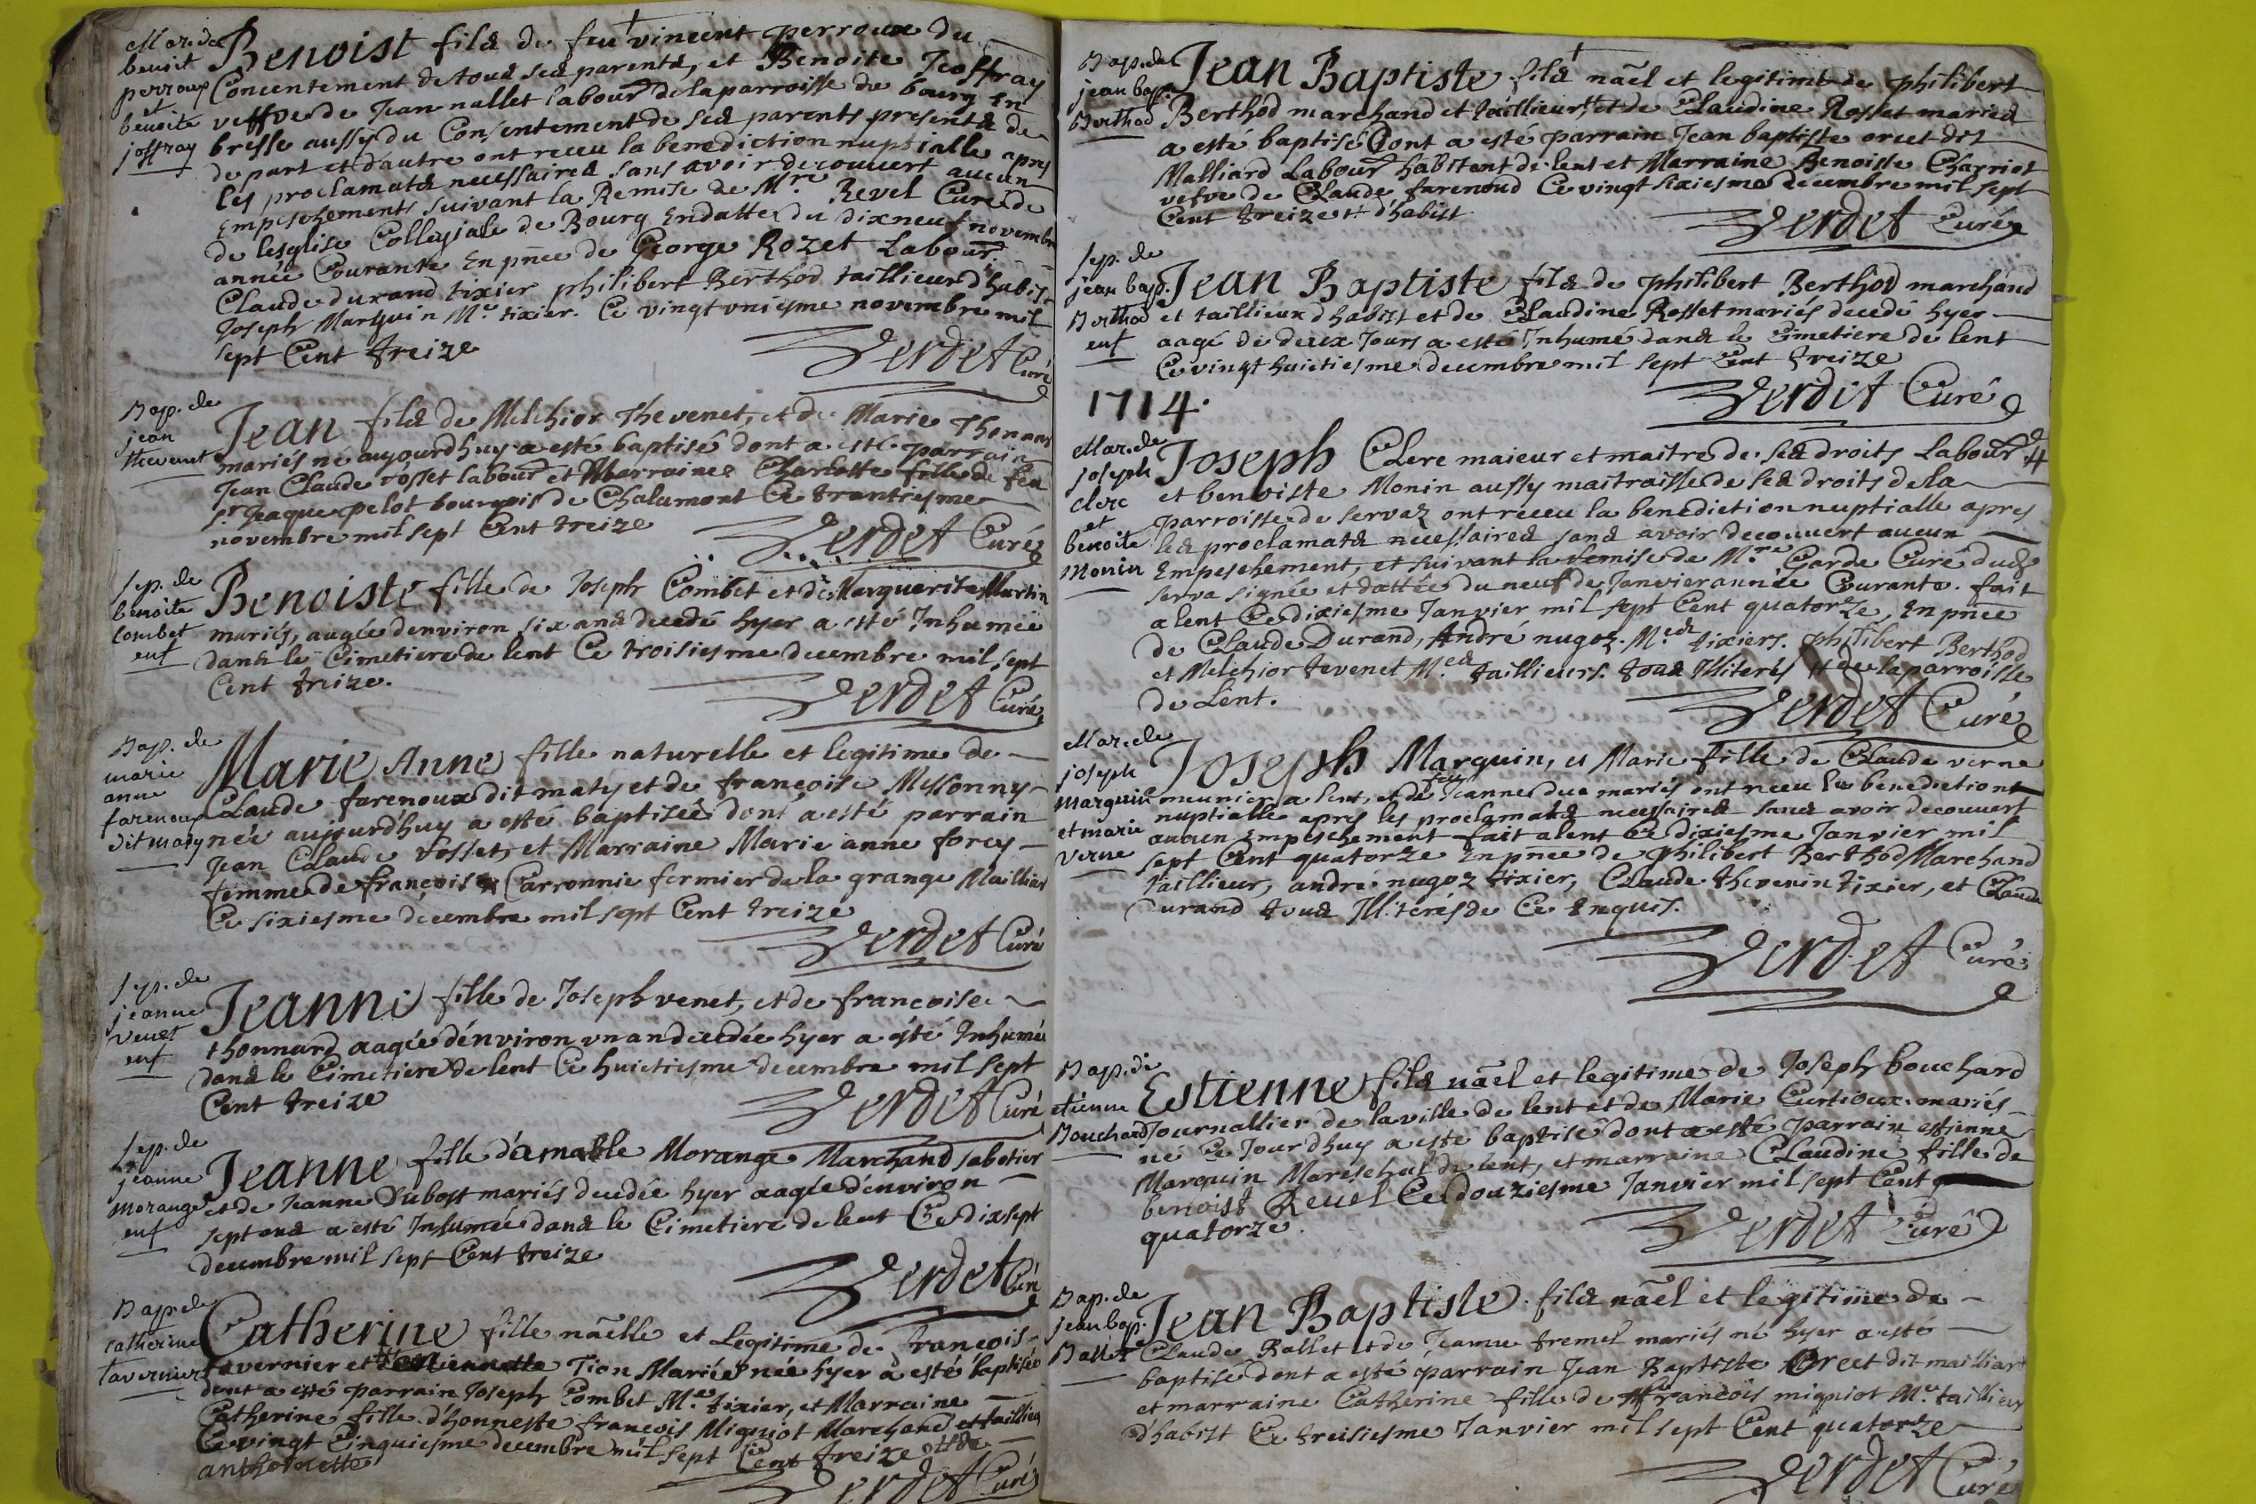 Mar. de
benoit
perroux
et
benoite
joffray
Benoist fils de feu vincent perroux du
Concentement de tous ses parents, et Benoite Jeoffray
veffve de Jean nallet labour de la parroisse de bourg En
bresse aussy du Consentement de ses parents presents de
de part et d'autre ont receu la benediction nuptialle apres
les proclamats necessaires sans avoir decouvert aucun
Empeschements suivant la Remise de Mre Revel Curé de
de lesglise Collegiale de Bourg Endatte du dixneuf novembre
année Courante En pnce de George Rozet Labour
Claude durand tixier philibert Berthod taillieur d'habits
Joseph Marquin Me tixier. Ce vingt uniesme novembre mil
sept Cent treize
Verdet Curé
Bap. de
jean
thevenet
Jean fils de Melchior Thevenet, et de Marie Thonnard
mariés né aujourdhuy a esté baptisé dont a esté parrain
Jean Claude fosset labour et Marraine Charlotte fille de feu
sr Jaque pelot bourgois de Chalamont Ce trantiesme
novembre mil sept Cent treize
Verdet Curé
Sep. de
benoite
combet
enf
Benoiste fille de Joseph Combet et de Marguerite Martin
mariés, aagée denviron six ans decedé hyer a esté Inhumée
dans le Cimetiere de lent Ce troisiesme decembre mil sept
Cent treize.
Verdet Curé
Bap. de
marie
anne
farenoux
dit maty
Marie Anne fille naturelle et legitime de
Claude farenoux dit maty et de françoise Messonny
née aujourdhuy a esté baptisée dont a esté parrain
Jean Claude fosset, et Marraine Marie anne forey
femme de françois Carronnie fermier de la grange Mailliar
Ce sixiesme decembre mil sept Cent treize
Verdet Curé
Sep. de
jeanne
venet
enf
Jeanne fille de Joseph venet, et de francoise
thonnard aagée d'environ un an decedée hyer a esté Inhumée
dans le Cimetiere de lent Ce huictiesme decembre mil sept
Cent treize
Verdet Curé
Sep. de
jeanne
morange
enf
Jeanne fille d'amable Morange Marchand sabotier
et de Jeanne Dubost mariés decedée hyer aagée d'environ
sept ans a esté Inhumée dans le Cimetiere de lent Ce dixsept
decembre mil sept Cent treize
Verdet Curé
Bap. de
catherine
tavernier
Catherine fille nãelle et Legitime de francois
tavernier et Tion Mariés née hyer a esté baptisée
dont a esté parrain Joseph Combet Me tixier, et Marraine
Catherine fille d'honneste francois Migniot Marchand et taillieur
Ce vingt Cinquiesme decembre mil sept Cent treize # de
anthoinette
Verdet Curé
Bap. de
jean bap.
Berthod
Jean Baptiste fils nãel et legitime de philibert
Berthod marchand et taillieur # et de Claudine Rosset mariés
a esté baptisé dont a esté parrain Jean baptiste orcet dit
Malliard Labour habitent de lent et Marraine Benoiste Charriot
vefve de Claude farenoud Ce vingt sixiesme decembre mil sept
Cent treize # d'habist
Verdet Curé
Sep. de
jean bap.
Berthod
enf
Jean Baptiste fils de philibert Berthod marchand
et taillieur d'habist et de Claudine Rosset mariés decedé hyer
aagé de deux Jours a esté Inhumé dans le Cimetiere de lent
Ce vingt huictiesme decembre mil sept Cent treize
Verdet Curé
1714.
Mar. de
joseph
clerc
et
benoite
Monin
Joseph Clerc maieur et maitre de ses droits Labour #
et benoiste Monin aussy maitraisse de ses droits de la
parroisse de servaz ont receu la benediction nuptialle apres
les proclamats necessaires sans avoir decouvert aucun
Empeschement, et suivant la Remise de Mre Garde Curé dud
Serva signée et dattée du neuf de Janvier année Courante. fait
a lent Ce dixiesme Janvier mil sept Cent quatorze, En pnce
de Claude Durand, André nugoz Mes tixiers. philibert Berthod
et Melchior tevenet Mes taillieurs. tous Illiterés # de la parroisse
de Lent.
Verdet Curé
Mar. de
joseph
marquin
et marie
verne
Joseph Marquin, et Marie fille de Claude verne
meunier a lent, et de feu Jeanne duc mariés ont receu la benediction
nuptialle apres les proclamats necessaires sans avoir decouvert
aucun Empeschement fait a lent Ce dixiesme Janvier mil
sept Cent quatorze En pnce de philibert Berthod Marchand
taillieur, andré nugoz tixier, Claude thevenin tixier, et Claude
Durand tous Illiterés de Ce Enquis.
Verdet Curé
Bap. de
etienne
Bouchard
Estienne fils nãel et legitime de Joseph bouchard
Journallier de la ville de lent et de Marie Curtioux mariés
né Ce Jourd'huy a esté baptisé dont a esté parrain estienne
Marquin Mareschal de lent, et marraine Claudine fille de
benoist Revel Ce douziesme Janvier mil sept Cent
quatorze.
Verdet Curé
Bap. de
jean bap.
Ballet
Jean Baptiste fils nãel et legitime de
Claude Ballet et de Jeanne tremel mariés né hyer a esté
baptisé dont a esté parrain Jean Baptiste Orcet dit mailliar
et marraine Catherine fille de francois migniot Me taillieur
d'habist Ce treisiesme Janvier mil sept Cent quatorze
Verdet Curé